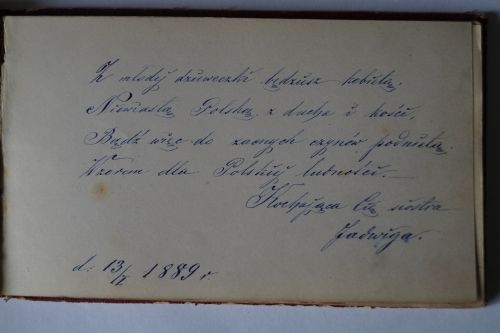 Z młodej dzieweczki będziesz kobietą,
Niewiastą Polską z ducha i kości,
Bądź więc do zacnych czynów podnietą
Wzorem dla Polskiej ludności.
Kochająca Cię siostra
Jadwiga.
d. 13/X 1889 r